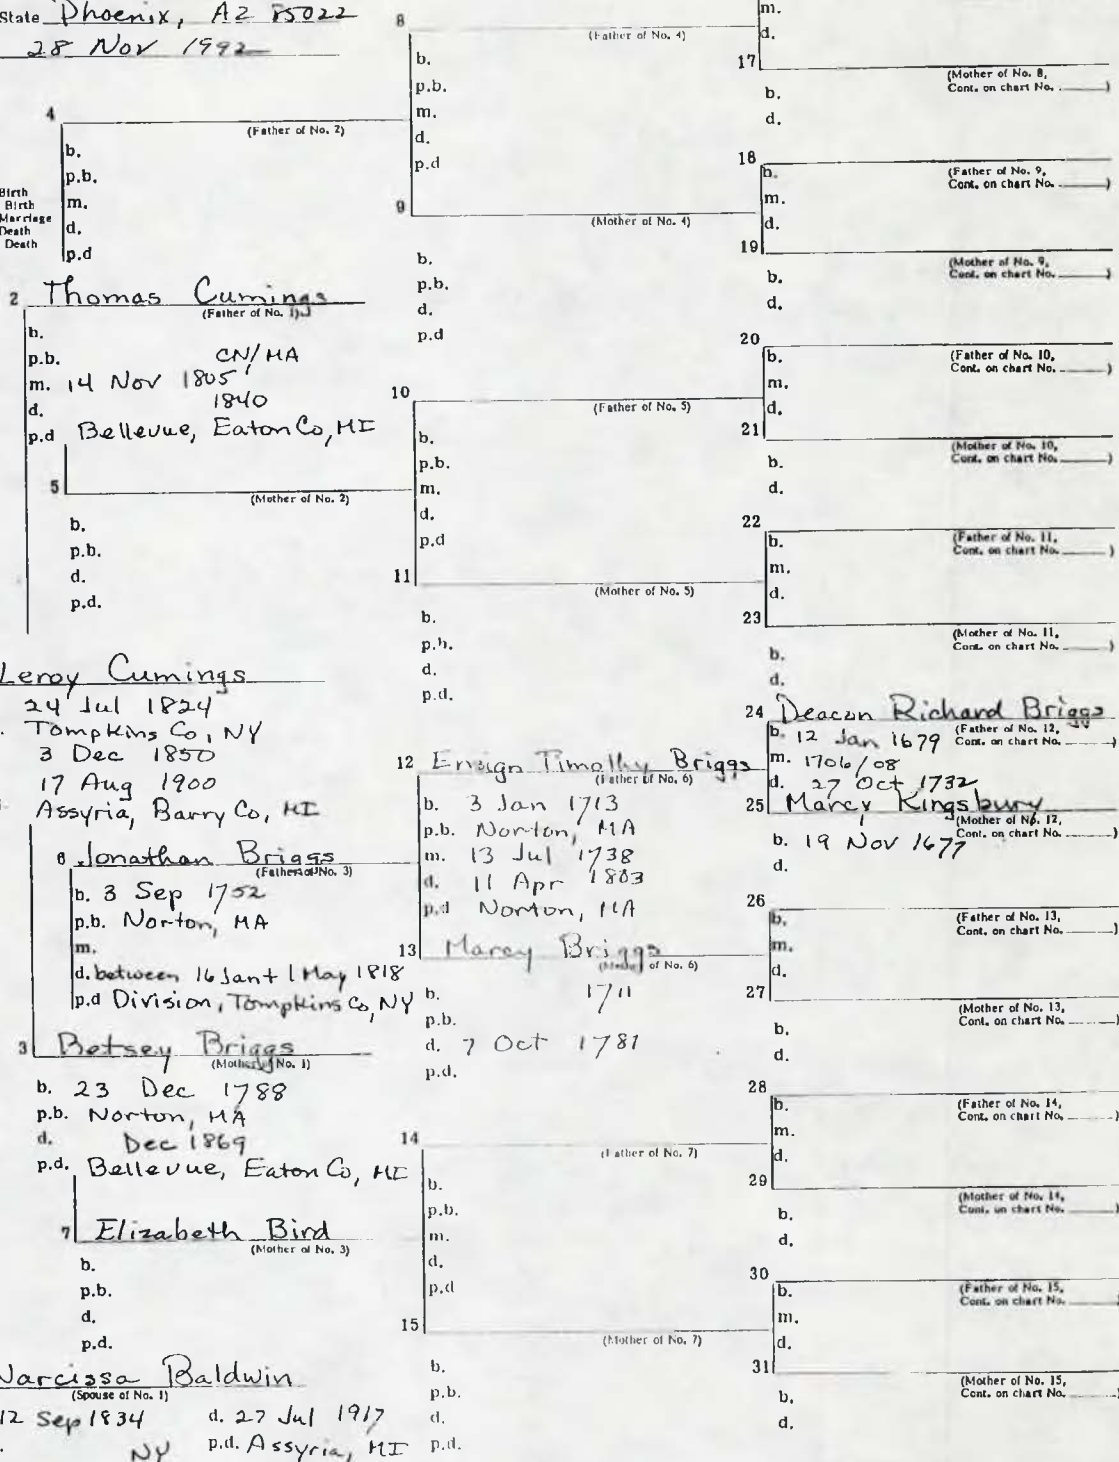 State Phoenix, AZ 85022
28 Nov 1992
Birth
Birth
Marriage
Death
Death
4
(Father of No. 2)
b.
p.b.
m.
d.
p.d
2 Thomas Cumings
(Father of No. 1)
b.
p.b. CN/MA
m. 14 Nov 1805
d. 1840
p.d Bellevue, Eaton Co, MI
5
(Mother of No. 2)
b.
p.b.
d.
p.d.
Leroy Cumings
24 Jul 1824
Tompkins Co, NY
3 Dec 1850
17 Aug 1900
Assyria, Barry Co, MI
6 Jonathan Briggs
(Father of No. 3)
b. 3 Sep 1752
p.b. Norton, MA
m.
d. between 16 Jan + 1 May 1818
p.d Division, Tompkins Co, NY
3 Betsey Briggs
(Mother of No. 1)
b. 23 Dec 1788
p.b. Norton, MA
d. Dec 1869
p.d. Bellevue, Eaton Co, MI
7 Elizabeth Bird
(Mother of No. 3)
b.
p.b.
d.
p.d.
Narcissa Baldwin
(Spouse of No. 1)
12 Sep 1834 d. 27 Jul 1917
NY p.d. Assyria, MI
8
(Father of No. 4)
b.
p.b.
m.
d.
p.d
9
(Mother of No. 4)
b.
p.b.
d.
p.d
10
(Father of No. 5)
b.
p.b.
m.
d.
p.d
11
(Mother of No. 5)
b.
p.b.
d.
p.d.
12 Ensign Timothy Briggs
(Father of No. 6)
b. 3 Jan 1713
p.b. Norton, MA
m. 13 Jul 1738
d. 11 Apr 1803
p.d Norton, MA
13 Marcy Briggs
(Mother of No. 6)
b. 1711
p.b.
d. 7 Oct 1781
p.d.
14
(Father of No. 7)
b.
p.b.
m.
d.
p.d
15
(Mother of No. 7)
b.
p.b.
d.
p.d.
m.
d.
17
(Mother of No. 8,
Cont. on chart No. ____)
b.
d.
18
(Father of No. 9,
Cont. on chart No. ____)
b.
m.
d.
19
(Mother of No. 9,
Cont. on chart No. ____)
b.
d.
20
(Father of No. 10,
Cont. on chart No. ____)
b.
m.
d.
21
(Mother of No. 10,
Cont. on chart No. ____)
b.
d.
22
(Father of No. 11,
Cont. on chart No. ____)
b.
m.
d.
23
(Mother of No. 11,
Cont. on chart No. ____)
b.
d.
24 Deacon Richard Briggs
(Father of No. 12,
b. 12 Jan 1679 Cont. on chart No. ____)
m. 1706/08
d. 27 Oct 1732
25 Marcy Kingsbury
(Mother of No. 12,
b. 19 Nov 1677 Cont. on chart No. ____)
d.
26
(Father of No. 13,
Cont. on chart No. ____)
b.
m.
d.
27
(Mother of No. 13,
Cont. on chart No. ____)
b.
d.
28
(Father of No. 14,
Cont. on chart No. ____)
b.
m.
d.
29
(Mother of No. 14,
Cont. on chart No. ____)
b.
d.
30
(Father of No. 15,
Cont. on chart No. ____)
b.
m.
d.
31
(Mother of No. 15,
Cont. on chart No. ____)
b.
d.